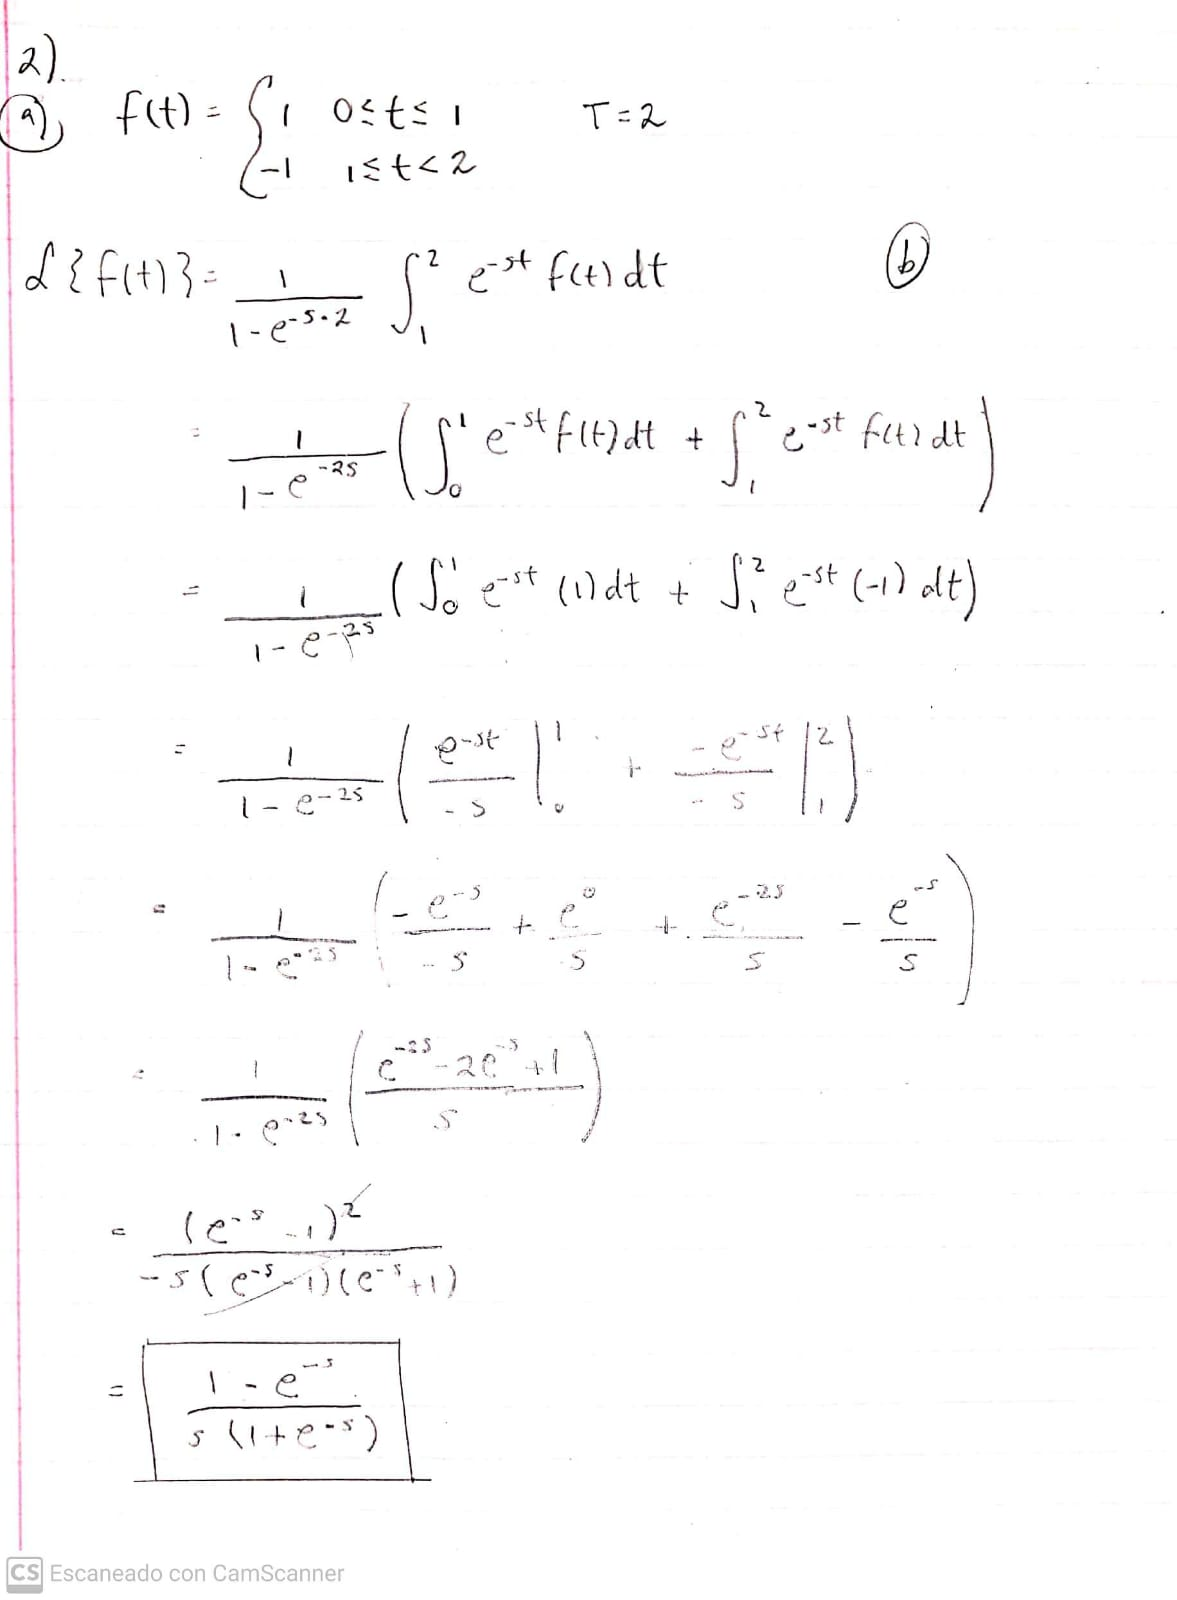 2).
a), f(t) = { 1 0≤t≤1 T=2
-1 1≤t<2
ℒ{f(t)} = 1/(1-e^{-s·2}) ∫_1^2 e^{-st} f(t) dt b
= 1/(1-e^{-2s}) (∫_0^1 e^{-st} f(t) dt + ∫_1^2 e^{-st} f(t) dt)
= 1/(1-e^{-2s}) (∫_0^1 e^{-st} (1) dt + ∫_1^2 e^{-st} (-1) dt)
= 1/(1-e^{-2s}) (e^{-st}/-s |_0^1 + -e^{-st}/-s |_1^2)
= 1/(1-e^{-2s}) (-e^{-s}/-s + e^0/s + e^{-2s}/s - e^{-s}/s)
= 1/(1-e^{-2s}) ((e^{-2s}-2e^{-s}+1)/s)
= (e^{-s}-1)^2/(-s(e^{-s}-1)(e^{-s}+1))
= (1-e^{-s})/(s(1+e^{-s}))
CS Escaneado con CamScanner